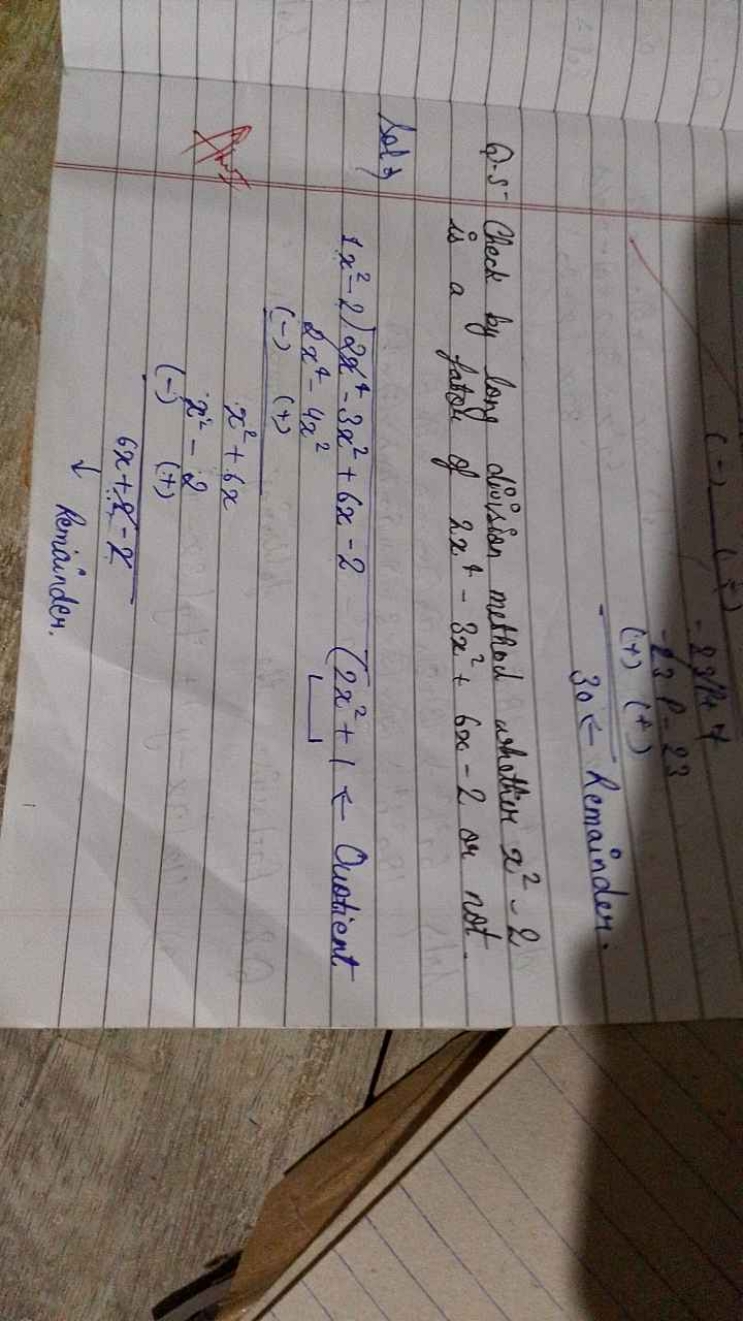 (-) (+)
- 23p + 7
- 23p - 23
(+) (+)
30 ← Remainder.
Q-5- Check by long division method whether x² - 2
is a fator of 2x⁴ - 3x² + 6x - 2 or not
Sol →
1x² - 2) 2x⁴ - 3x² + 6x - 2 (2x² + 1 ← Quotient
2x⁴ - 4x²
(-) (+)
x² + 6x
x² - 2
(-) (+)
6x + 2 - 2
↓
Remainder.